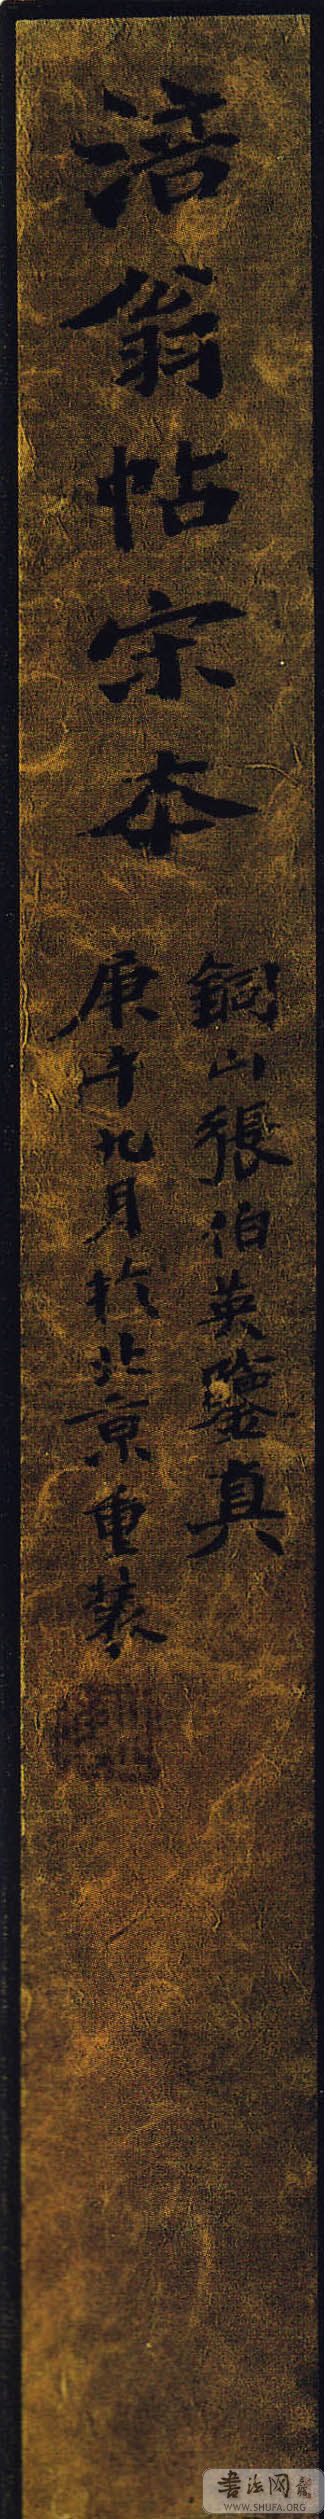 涪翁帖宋本
銅山張伯英鑒真
庚午九月於北京重裝
书法网
WWW.SHUFA.ORG